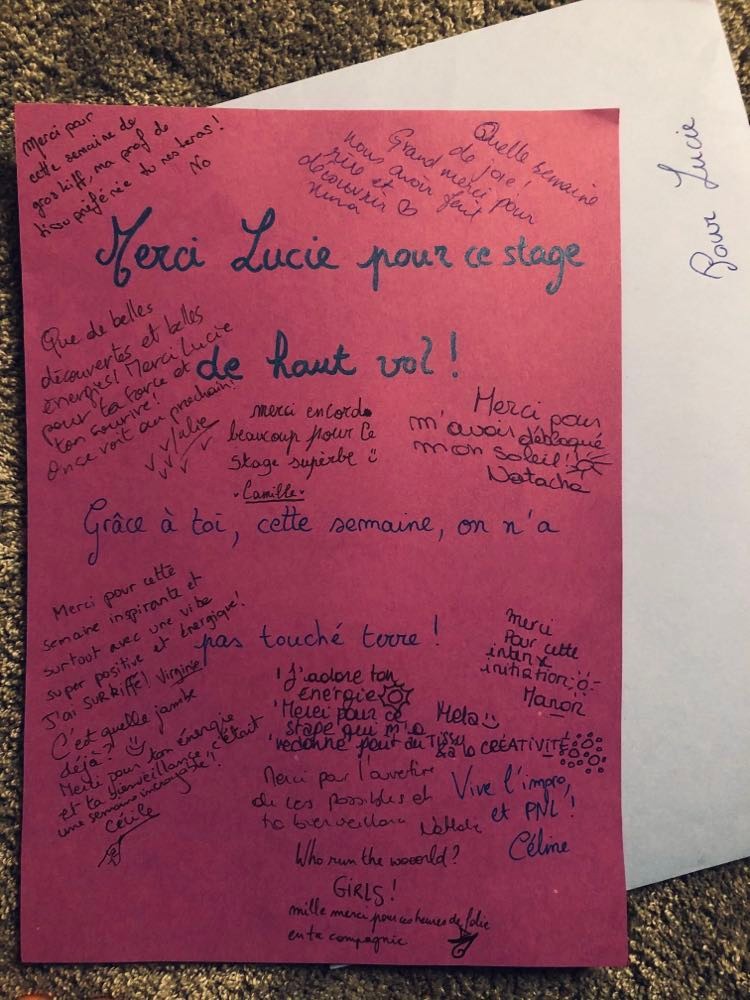 Merci pour
cette semaine de
gros kiff, ma prof de
tissu préférée tu
No
Quelle semaine
de joie!
Grand merci pour
nous avoir fait
rire et
découvrir ♡
Nina
Pour Lucie
Merci Lucie pour ce stage
de haut vol !
Que de belles
découvertes et belles
énergies! Merci Lucie
pour ta force et
ton sourire!
On se voit au prochain!
Julie
merci encore
beaucoup pour ce
stage superbe
- Camille -
Merci pour
m'avoir débloqué
mon soleil!
Natacha
Grâce à toi, cette semaine, on n'a
pas touché terre !
Merci pour cette
semaine inspirante et
surtout avec une vibe
super positive et énergique!
J'ai SURKIFFÉ! Virginie
merci
Pour cette
intense
initiation
Manon
C'est quelle jambe
déjà?
Merci pour ton énergie
et ta bienveillance c'était
une semaine incroyable!!
Cécile
J'adore ton
énergie
Merci pour ce
stage qui m'a
redonné goût au Tissu
& à la CRÉATIVITÉ
Mela
Merci pour l'ouverture
de ces possibles et
ta bienveillance
Vive l'impro,
et PNL !
Céline
Who run the wooorld?
GIRLS!
mille merci pour ces heures de folie
en ta compagnie